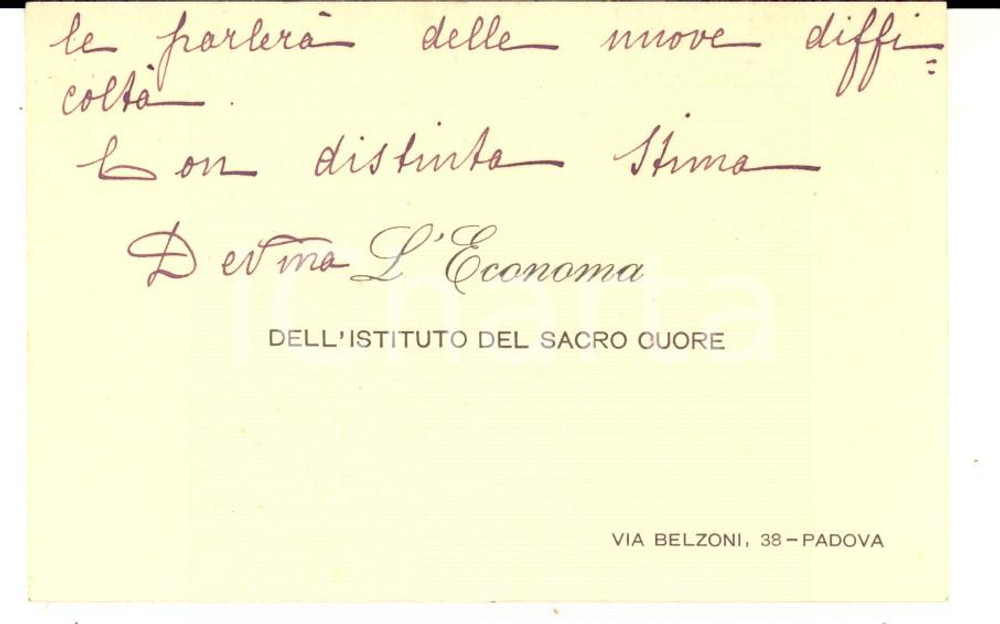 le parlerà delle nuove diffi=
coltà.
Con distinta stima
Dev.ma L'Economa
DELL'ISTITUTO DEL SACRO CUORE
iCharta
VIA BELZONI, 38 - PADOVA